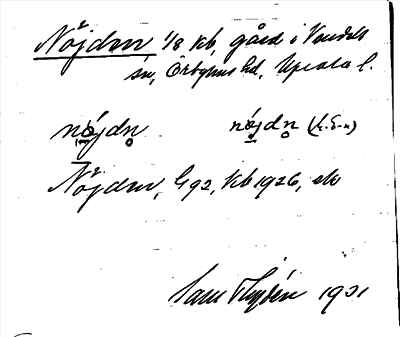 Nöjden 1/8 kb, gård i Vendels
sn, Örbyhus hd, Upsala l.
nöjdn nöjdn
Nöjden, G92, kb 1926, ek
Sam Thysén 1931